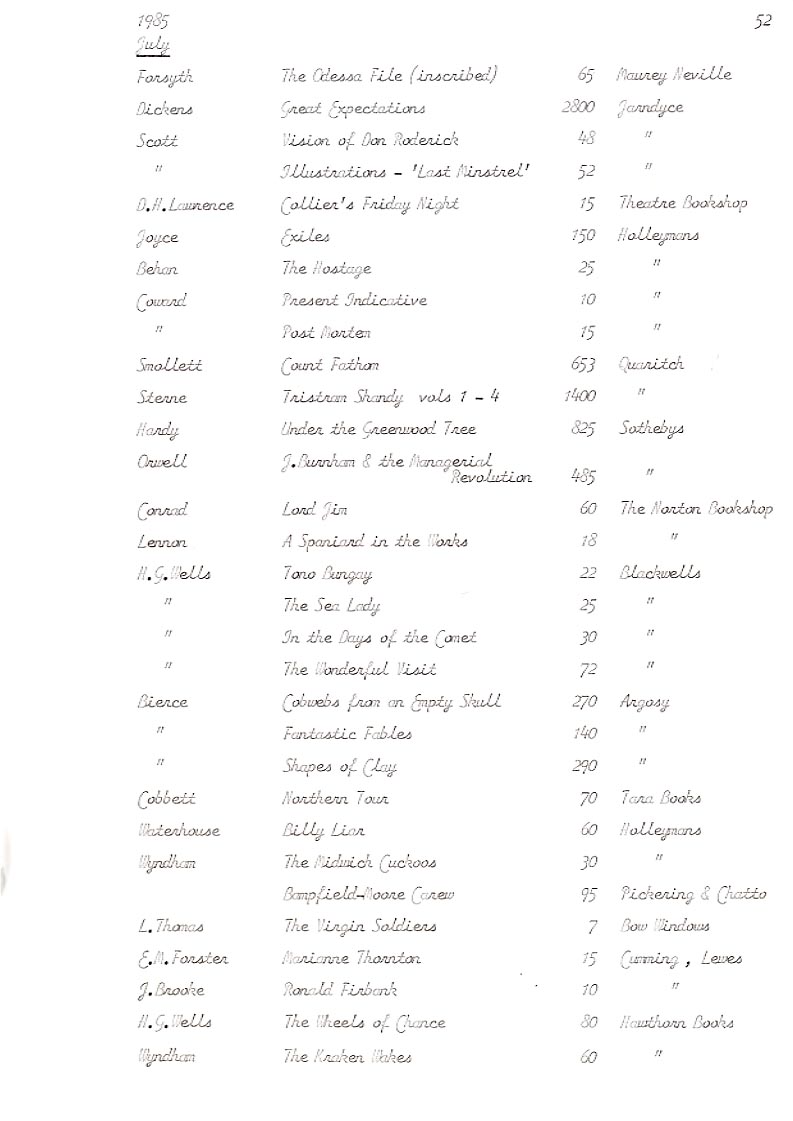 1985 52
July
Forsyth The Odessa File (inscribed) 65 Maurey Neville
Dickens Great Expectations 2800 Jarndyce
Scott Vision of Don Roderick 48 "
" Illustrations - 'Last Minstrel' 52 "
D.H.Lawrence Collier's Friday Night 15 Theatre Bookshop
Joyce Exiles 150 Holleymans
Behan The Hostage 25 "
Coward Present Indicative 10 "
" Post Morten 15 "
Smollett Count Fathom 653 Quaritch
Sterne Tristram Shandy vols 1 - 4 1400 "
Hardy Under the Greenwood Tree 825 Sothebys
Orwell J.Burnham & the Managerial
Revolution 485 "
Conrad Lord Jim 60 The Norton Bookshop
Lennon A Spaniard in the Works 18 "
H.G.Wells Tono Bungay 22 Blackwells
" The Sea Lady 25 "
" In the Days of the Comet 30 "
" The Wonderful Visit 72 "
Bierce Cobwebs from an Empty Skull 270 Argosy
" Fantastic Fables 140 "
" Shapes of Clay 290 "
Cobbett Northern Tour 70 Tara Books
Waterhouse Billy Liar 60 Holleymans
Wyndham The Midwich Cuckoos 30 "
Bampfield-Moore Carew 95 Pickering & Chatto
L.Thomas The Virgin Soldiers 7 Bow Windows
E.M.Forster Marianne Thornton 15 Cumming, Lewes
J.Brooke Ronald Firbank 10 "
H.G.Wells The Wheels of Chance 80 Hawthorn Books
Wyndham The Kraken Wakes 60 "